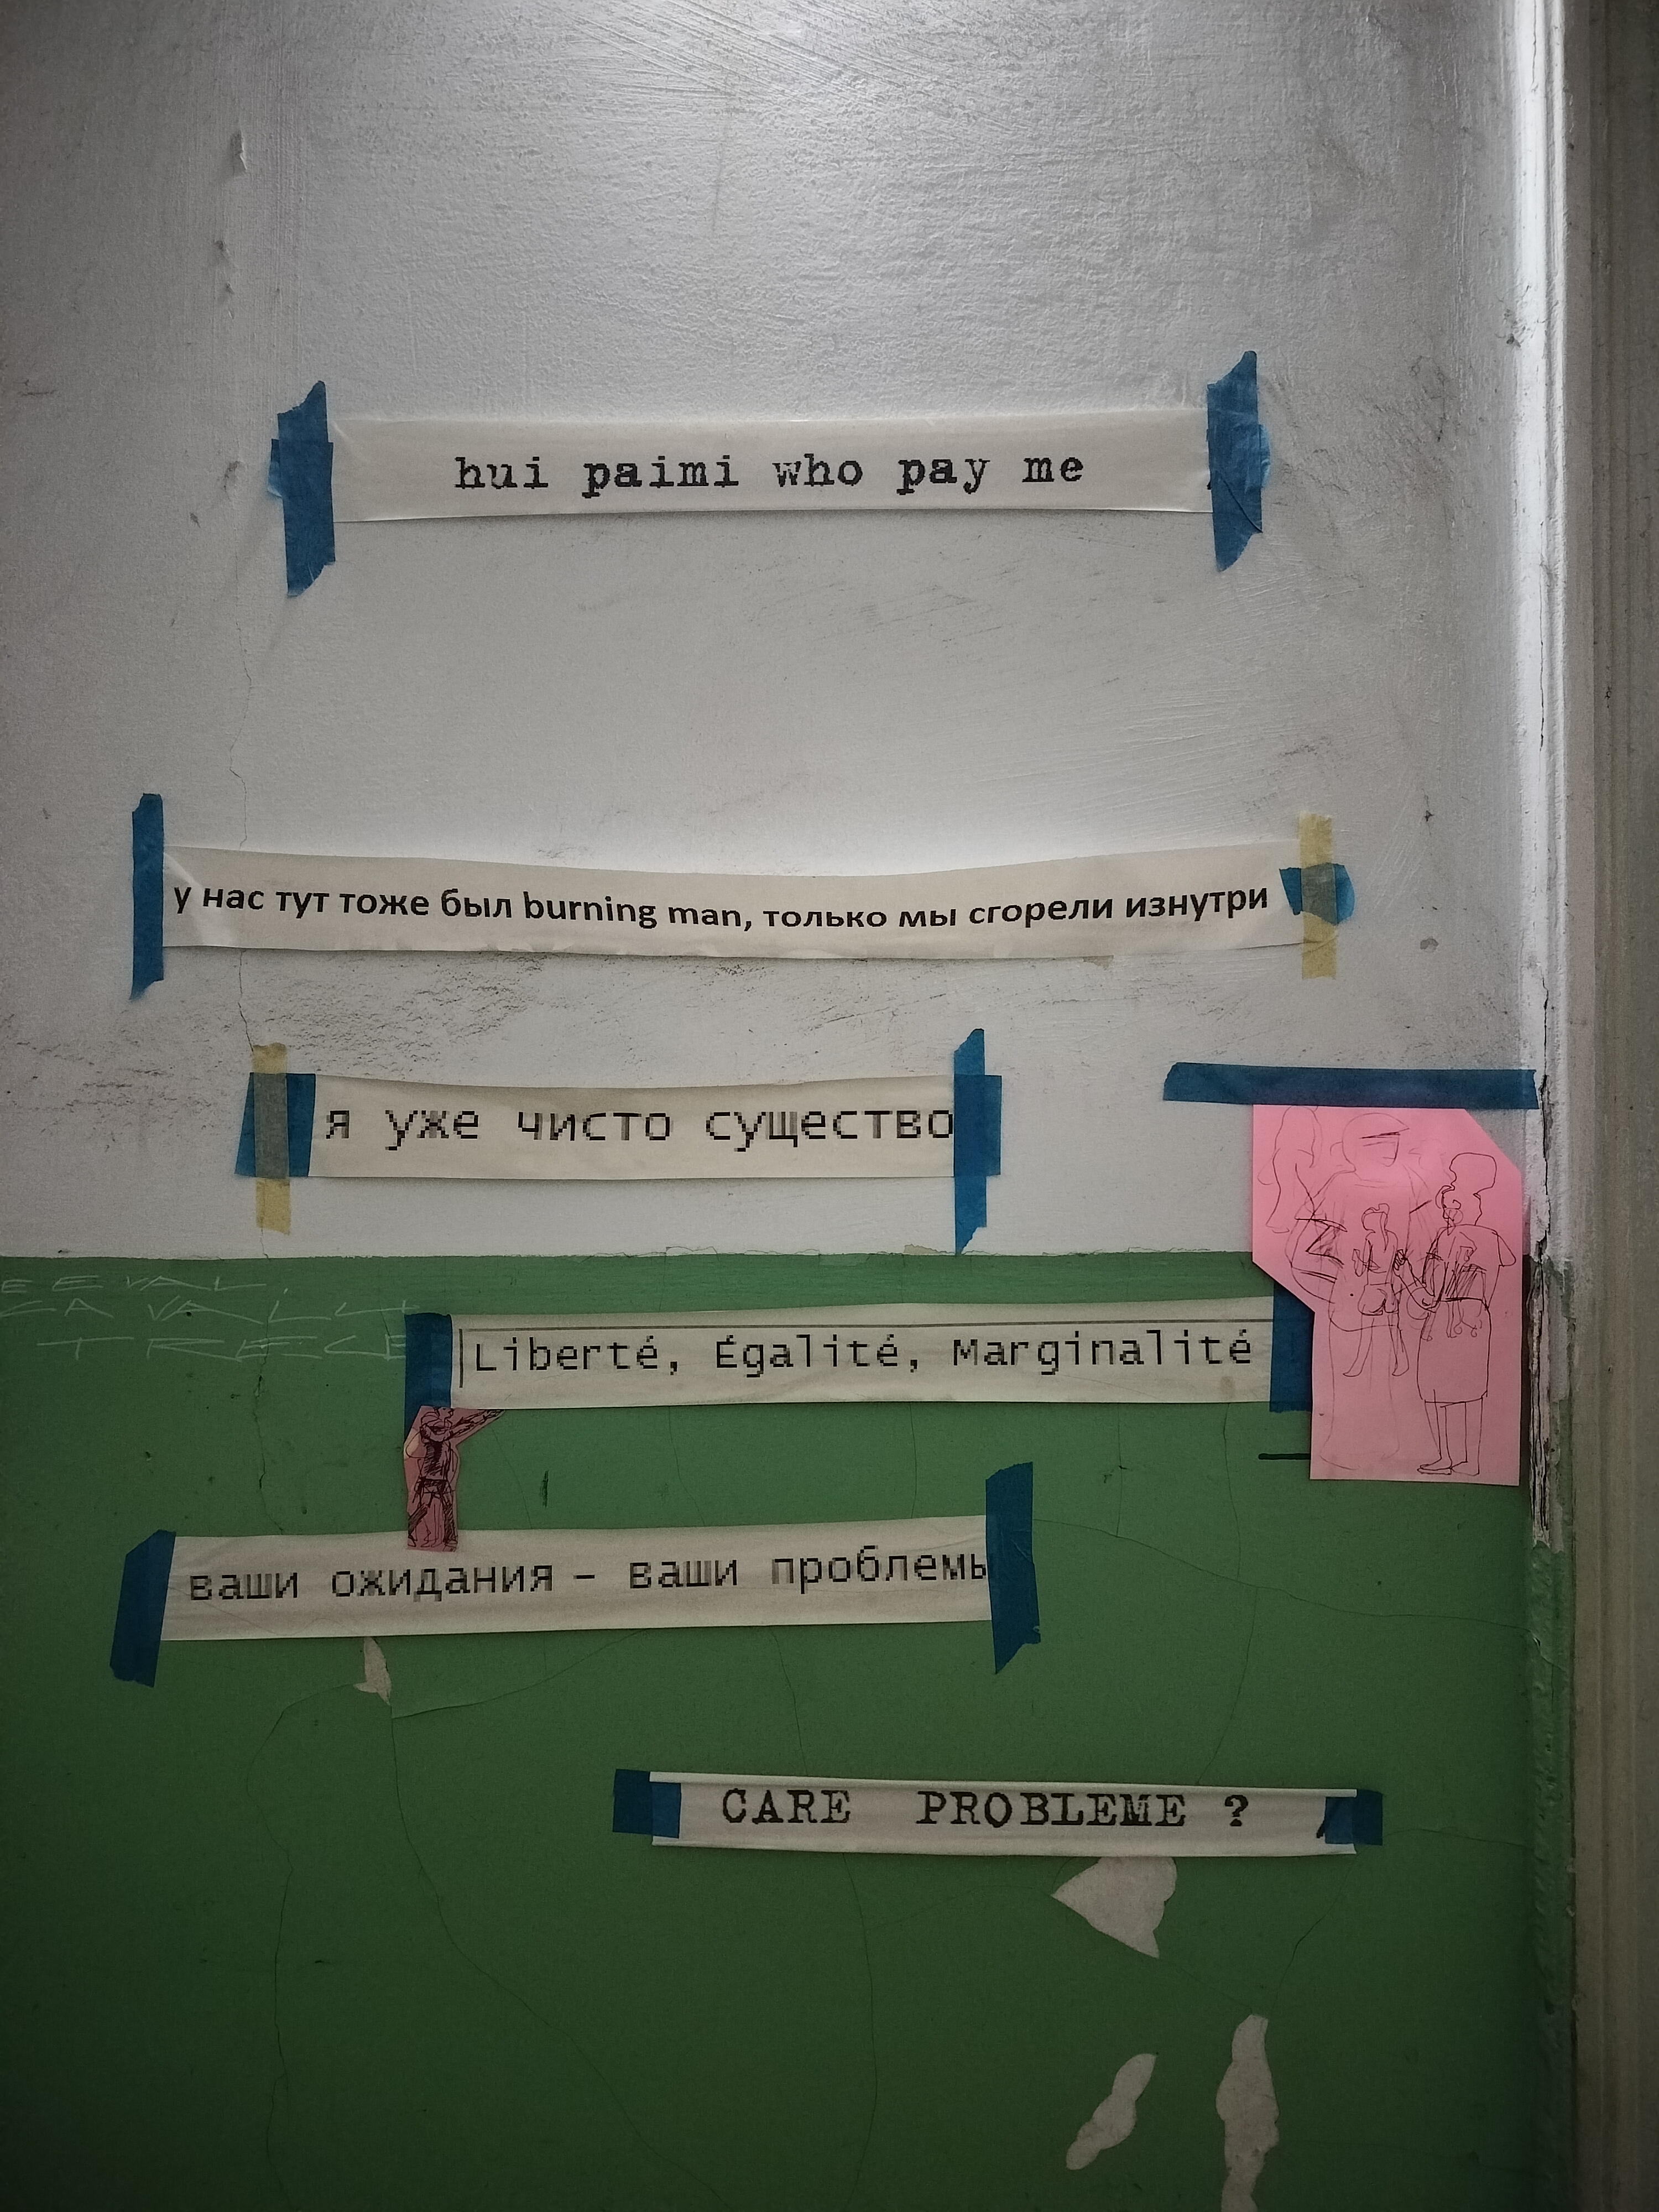 hui paimi who pay me
у нас тут тоже был burning man, только мы сгорели изнутри
я уже чисто существо
Liberté, Égalité, Marginalité
ваши ожидания – ваши проблемы
CARE PROBLEME ?